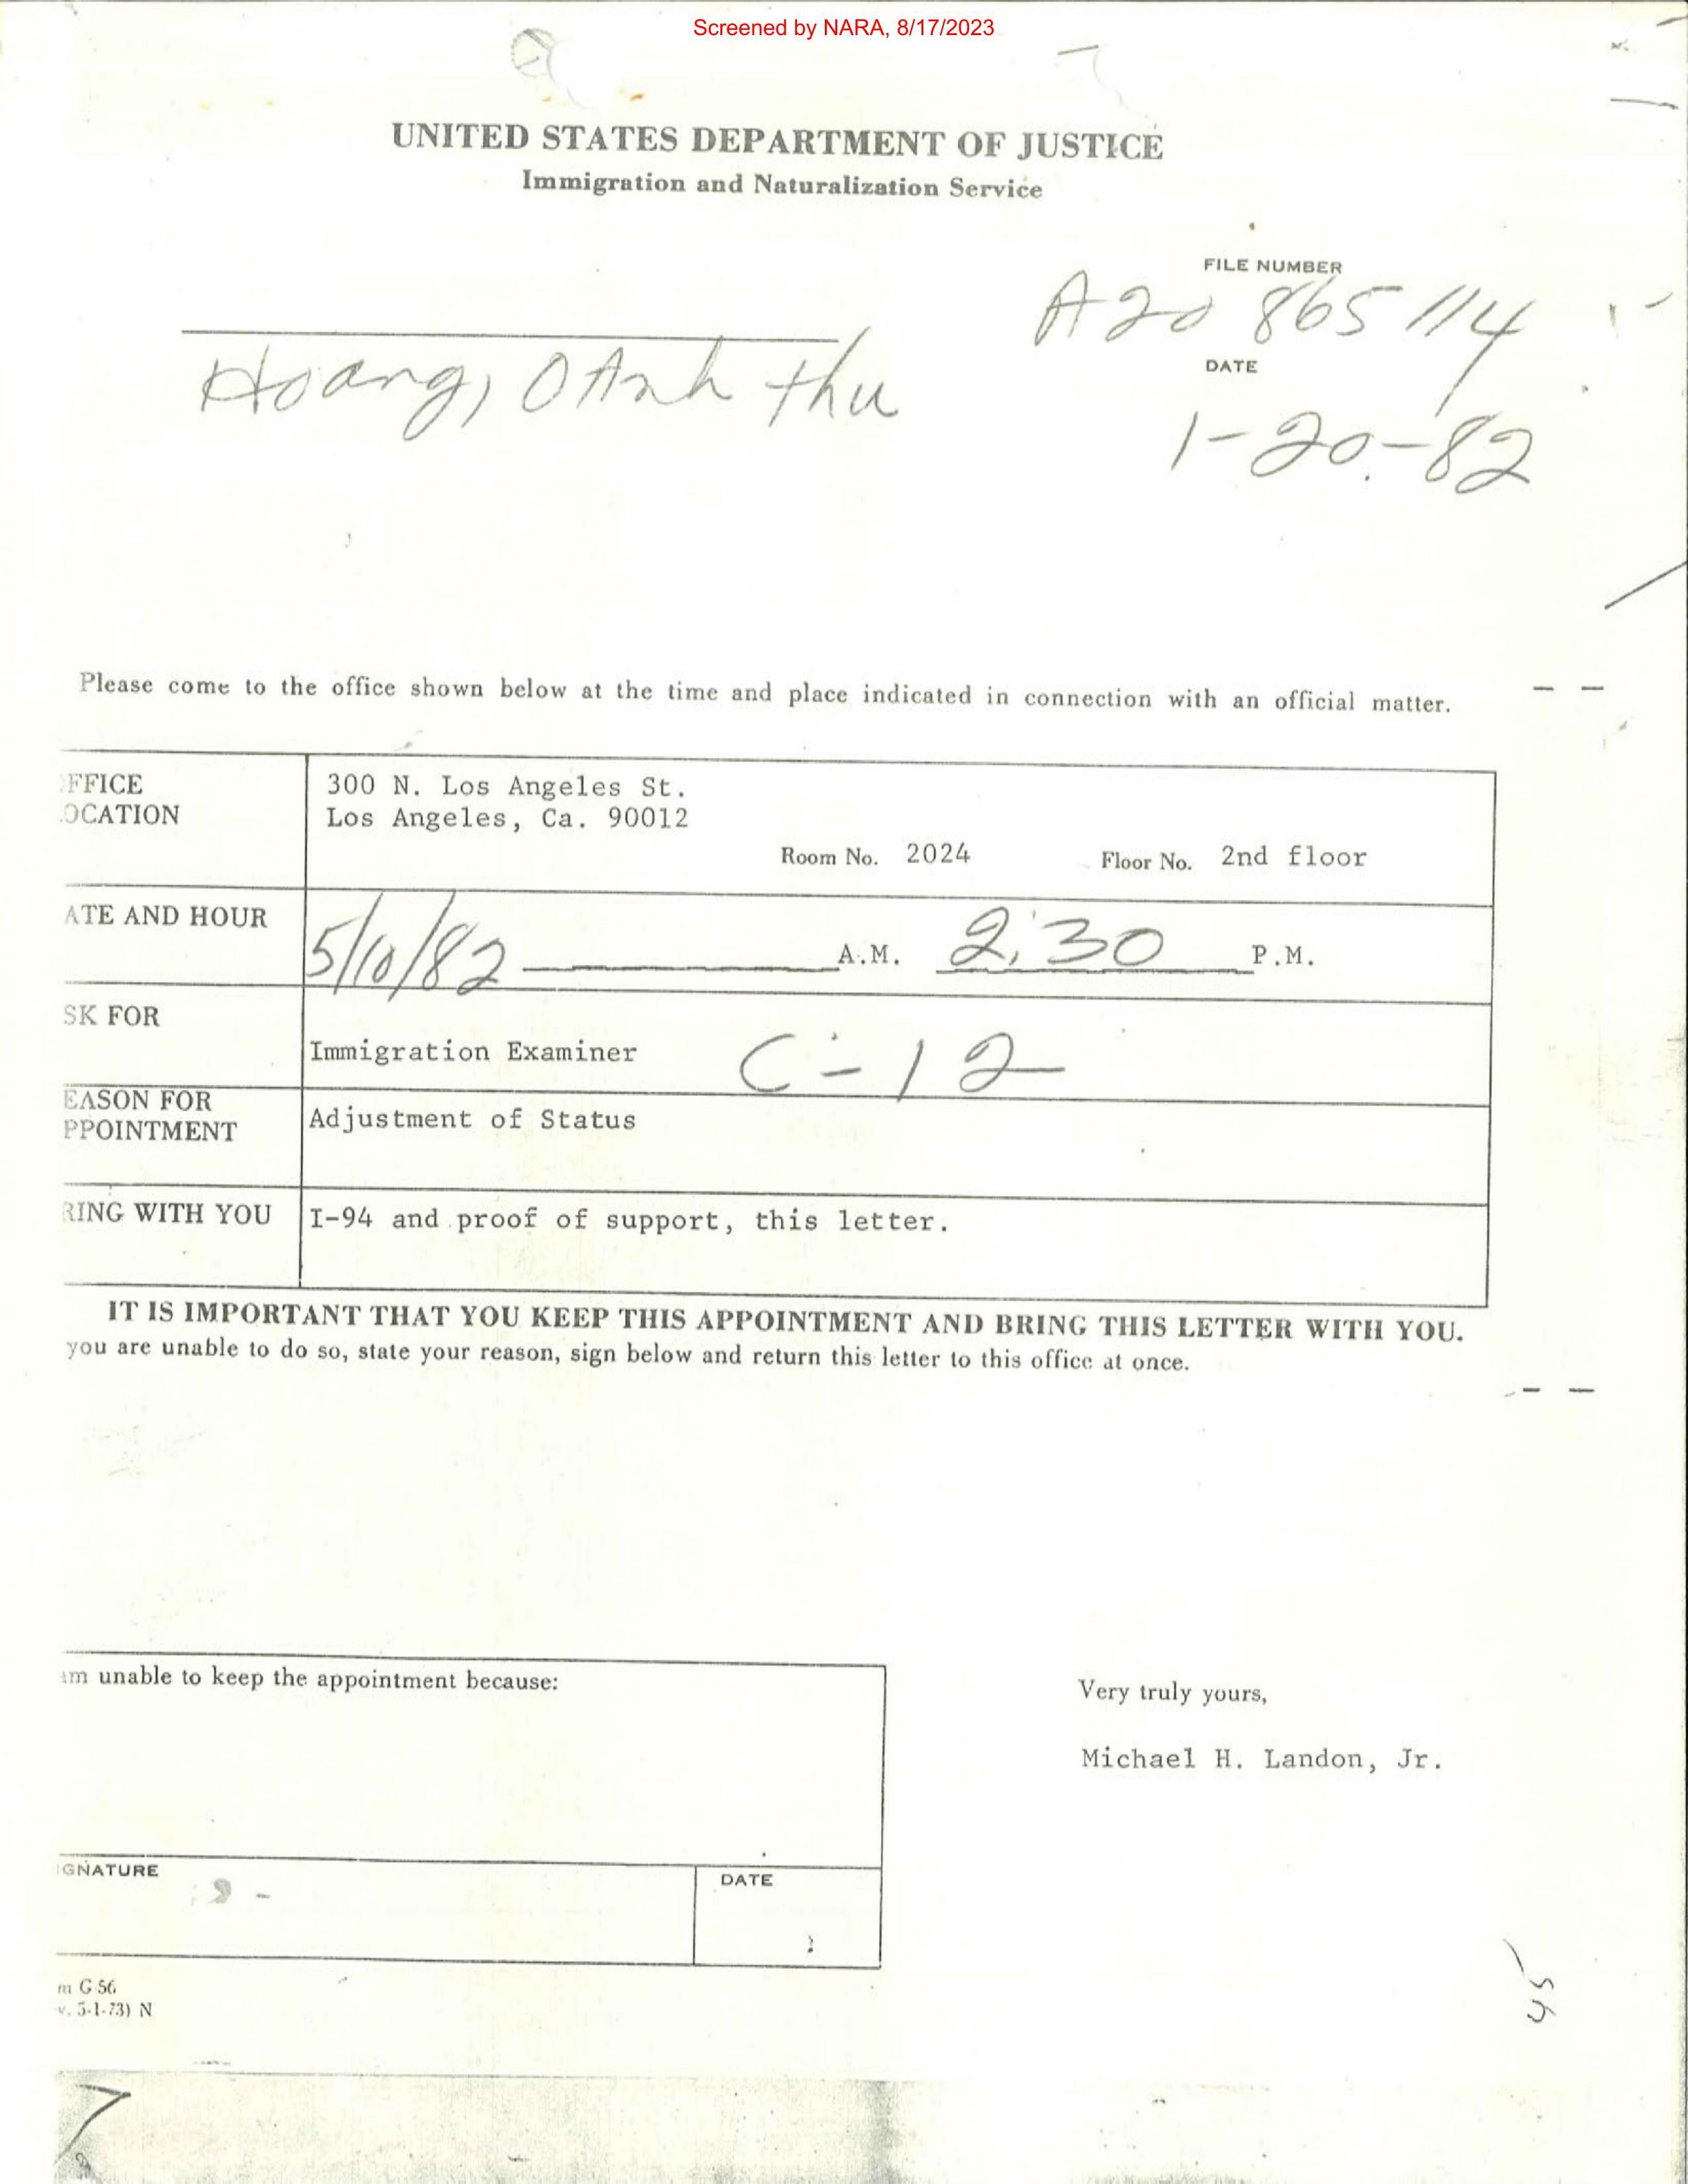 Screened by NARA, 8/17/2023
UNITED STATES DEPARTMENT OF JUSTICE
Immigration and Naturalization Service
FILE NUMBER
A20 865 114
Hoang, OAnh thu
DATE
1-20-82
Please come to the office shown below at the time and place indicated in connection with an official matter.
FFICE
OCATION
300 N. Los Angeles St.
Los Angeles, Ca. 90012
Room No. 2024 Floor No. 2nd floor
ATE AND HOUR
5/10/82 A.M. 2:30 P.M.
SK FOR
Immigration Examiner C-12
EASON FOR
PPOINTMENT
Adjustment of Status
RING WITH YOU
I-94 and proof of support, this letter.
IT IS IMPORTANT THAT YOU KEEP THIS APPOINTMENT AND BRING THIS LETTER WITH YOU.
you are unable to do so, state your reason, sign below and return this letter to this office at once.
am unable to keep the appointment because:
Very truly yours,
Michael H. Landon, Jr.
IGNATURE
DATE
m G-56
v. 5-1-73) N